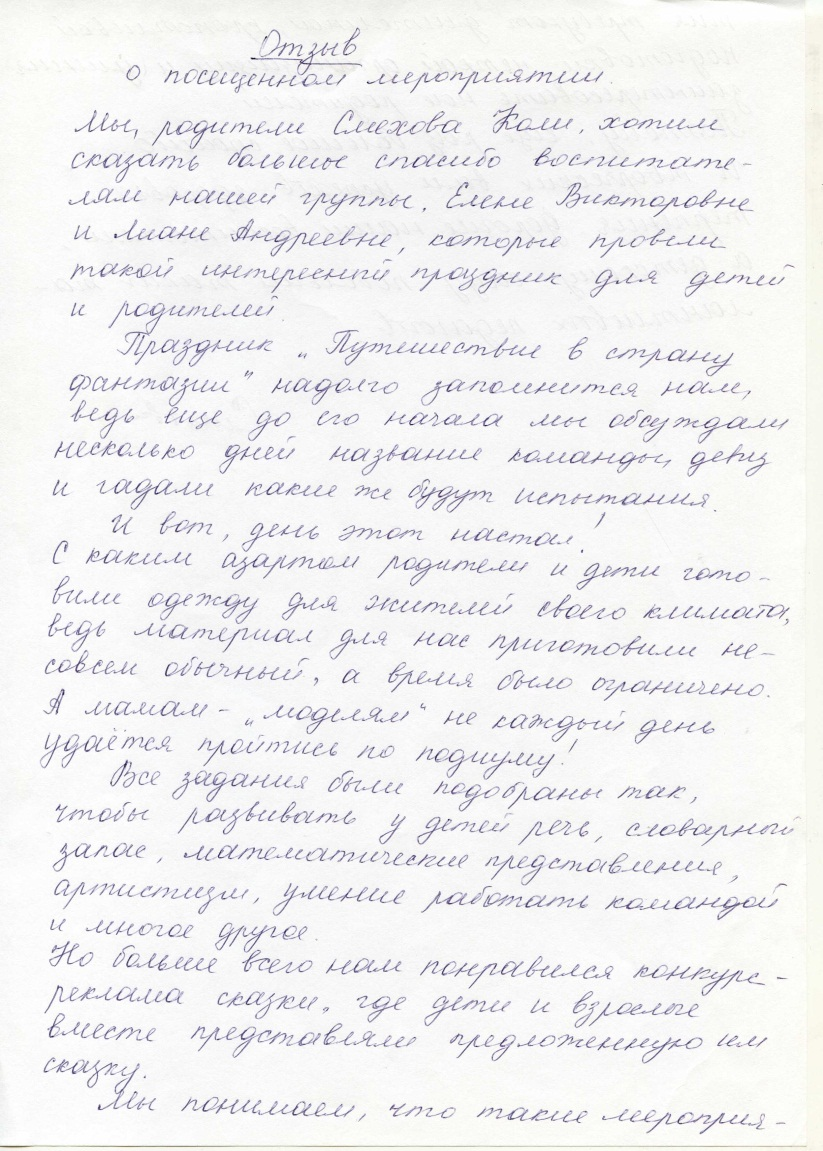 Отзыв
о посещенном мероприятии.
Мы, родители Смехова Коли, хотим
сказать большое спасибо воспитате-
лям нашей группы, Елене Викторовне
и Лиане Андреевне, которые провели
такой интересный праздник для детей
и родителей.
Праздник „Путешествие в страну
фантазии" надолго запомнится нам,
ведь еще до его начала мы обсуждали
несколько дней название команды, девиз
и гадали какие же будут испытания.
И вот, день этот настал!
С каким азартом родители и дети гото-
вили одежду для жителей своего климата,
ведь материал для нас приготовили не-
совсем обычный, а время было ограничено.
А мамам - „моделям" не каждый день
удаётся пройтись по подиуму!
Все задания были подобраны так,
чтобы развивать у детей речь, словарный
запас, математические представления,
артистизм, умение работать командой
и многое другое.
Но больше всего нам понравился конкурс-
реклама сказки, где дети и взрослые
вместе представляли предложенную им
сказку.
Мы понимаем, что такие мероприя-